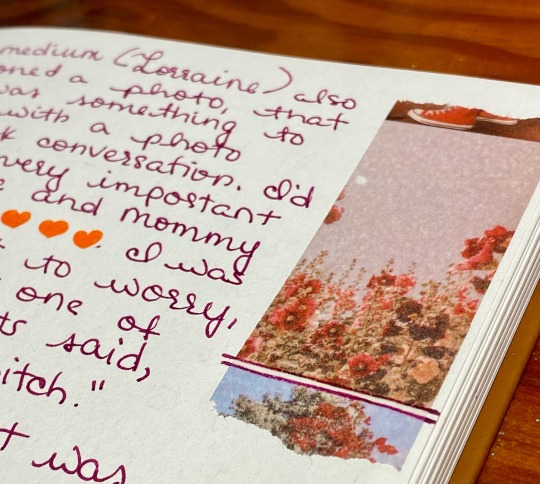 medium (Lorraine) also
oned a photo, that
was something to
with a photo
k conversation. I'd
very important
e and mommy
I was
t to worry,
one of
ts said,
itch."
t was